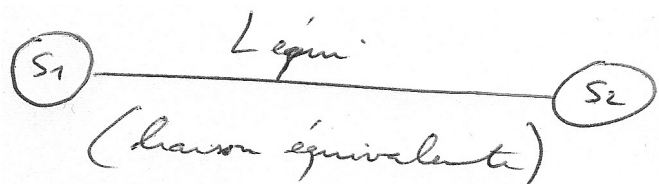 L équi.
S1 S2
(liaison équivalente)